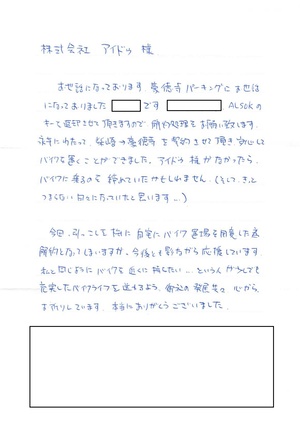 株式会社 アイドゥ 様
お世話になっております 豪徳寺パーキングにお世話
になっておりました です ALSOKの
キーを返却させて頂きますので、解約処理をお願い致します。
永年にわたって、 豪徳寺を契約させて頂き安心して
バイクを置くことができました。アイドゥ様がなかったら、
バイクに乗るのを諦めていたかもしれません。(そして、きっと
つまらない日々になっていたと思います…)
今回、引っこしを機に自宅にバイク置場を用意した為
解約となってしまいますが、今後とも影ながら応援しています。
私と同じようにバイクを近くに 、というんが
充実したバイクライフを送れるよう、御社の発展を 心から
お祈りしています。本当にありがとうございました。